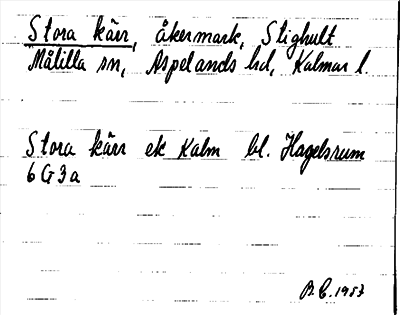 Stora kärr, åkermark, Stighult
Målilla sn, Aspelands hd, Kalmar l.
Stora kärr ek Kalm bl. Hagelsrum
6G3a
B.C. 1953